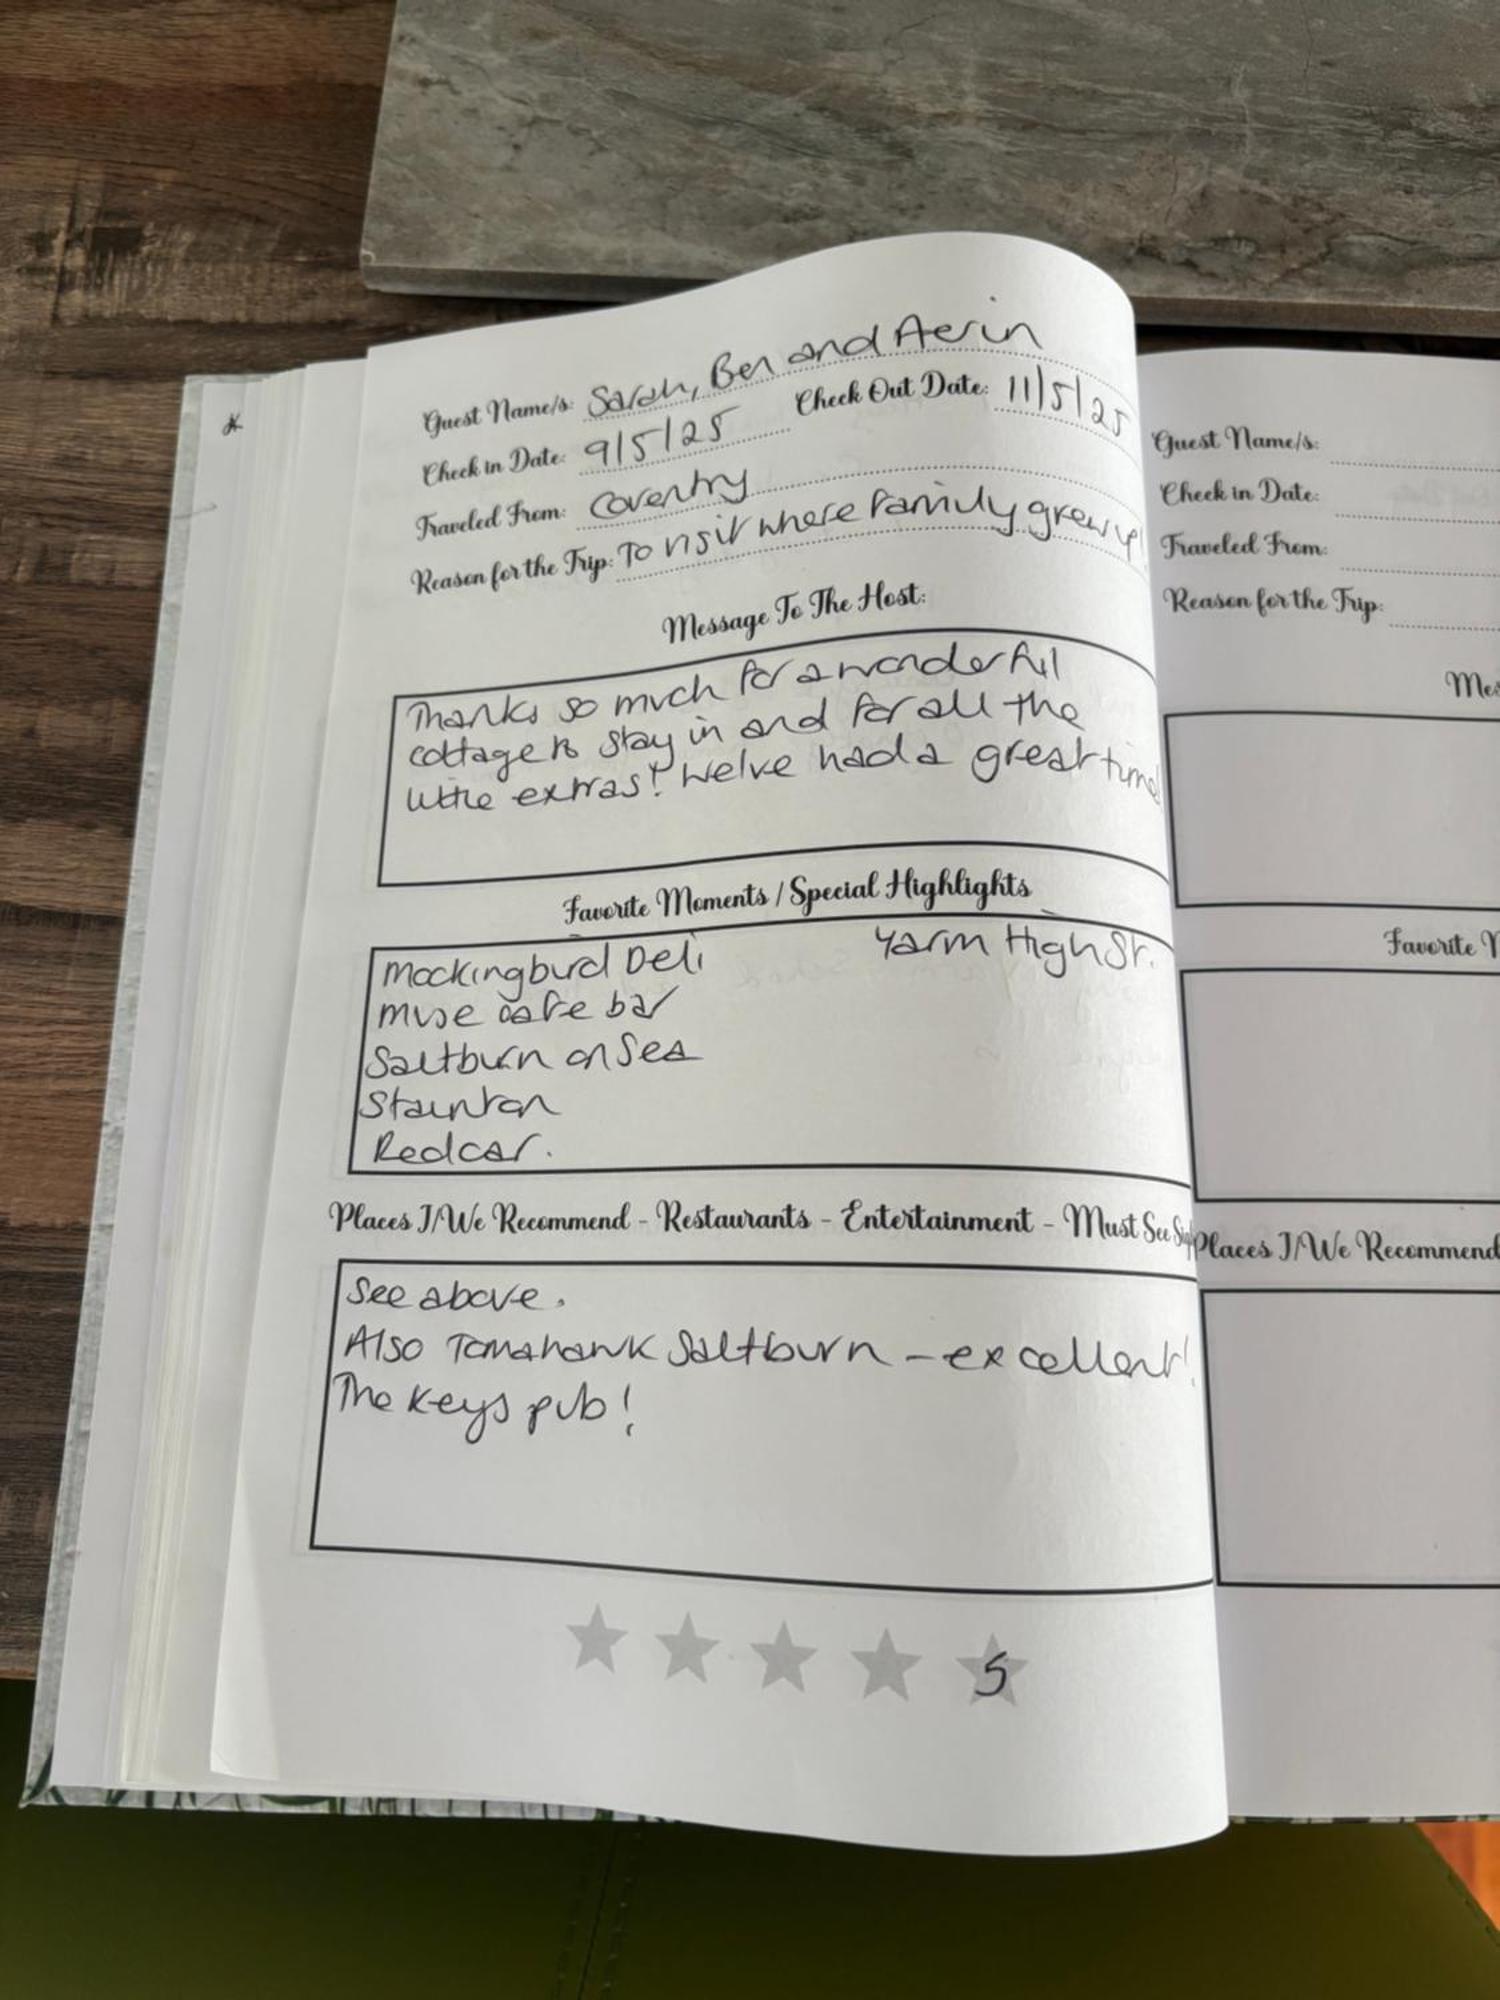 Guest Name/s: Sarah, Ben and Aerin
Check in Date: 9/5/25 Check Out Date: 11/5/25
Traveled From: Coventry
Reason for the Trip: To visit where family grew up!
Message To The Host:
Thanks so much for a wonderful
cottage to stay in and for all the
little extras! We've had a great time
Favorite Moments / Special Highlights
Mockingbird Deli Yarm High St.
Muse cafe bar
Saltburn on Sea
Stainton
Redcar.
Places I/We Recommend - Restaurants - Entertainment - Must See
See above.
Also Tomahawk Saltburn - excellent!
The Keys pub!
5
Guest Name/s:
Check in Date:
Traveled From:
Reason for the Trip:
Mes
Favorite M
Places I/We Recommend